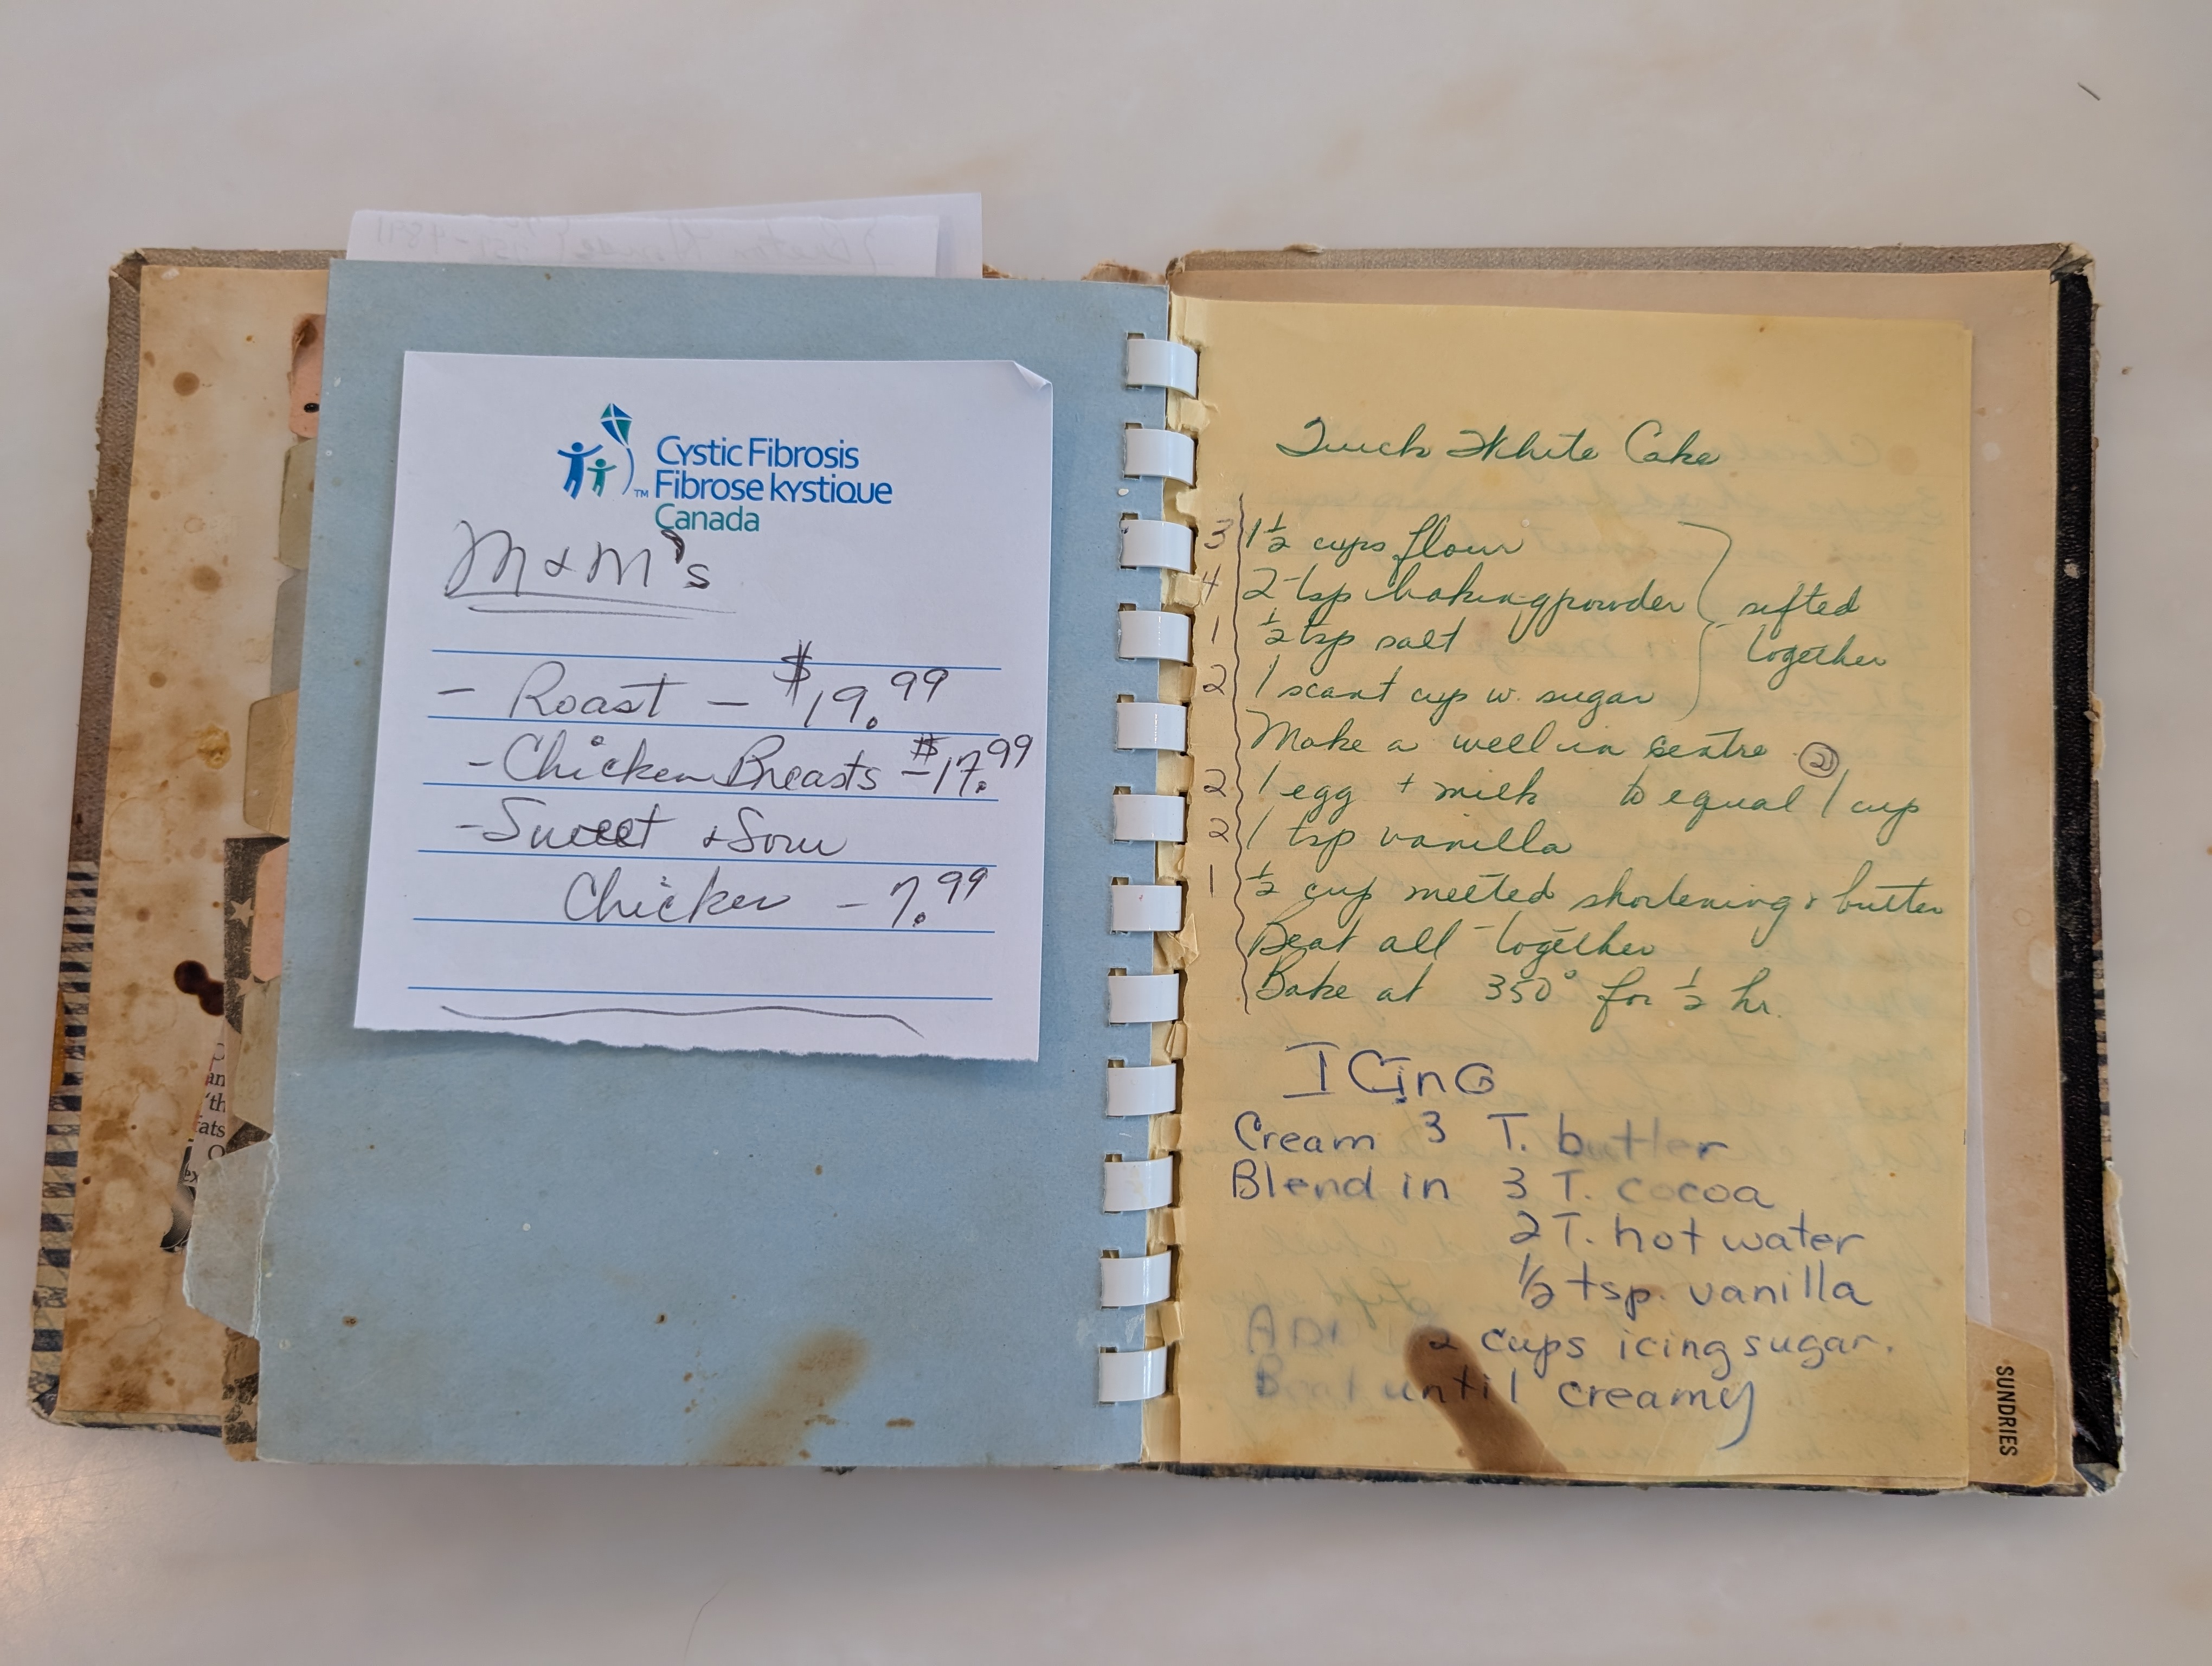 Cystic Fibrosis
Fibrose kystique
Canada
M & M's
- Roast - $19.99
- Chicken Breasts - $17.99
- Sweet & Sour
Chicken - 7.99
an
'th
ats
Quick White Cake
3 1 1/2 cups flour
4 2 tsp baking powder
1 1/2 tsp salt
2 1 scant cup w. sugar
sifted
together
Make a well in centre
2
2 1 egg + milk to equal 1 cup
2 1 tsp vanilla
1 1/2 cup melted shortening & butter
Beat all together
Bake at 350° for 1/2 hr.
ICinG
Cream 3 T. butter
Blend in 3 T. cocoa
2 T. hot water
1/2 tsp. vanilla
ADD 2 cups icing sugar.
Beat until creamy
SUNDRIES